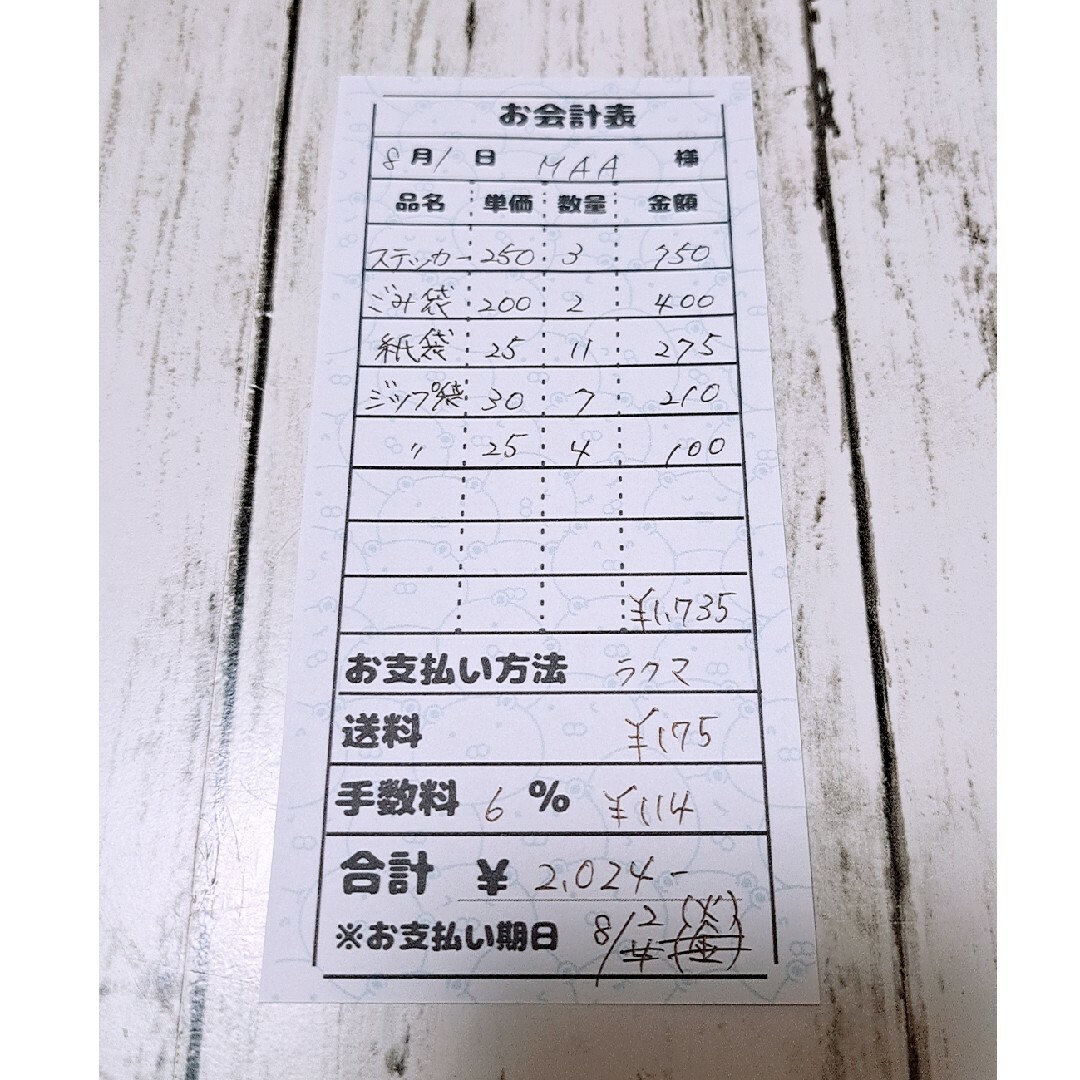 お会計表
8月1日 MAA 様
品名 単価 数量 金額
ステッカー 250 3 750
ごみ袋 200 2 400
紙袋 25 11 275
ジップ袋 30 7 210
〃 25 4 100
¥1,735
お支払い方法 ラクマ
送料 ¥175
手数料 6 % ¥114
合計 ¥ 2,024-
※お支払い期日 8/2(火)
4(金)